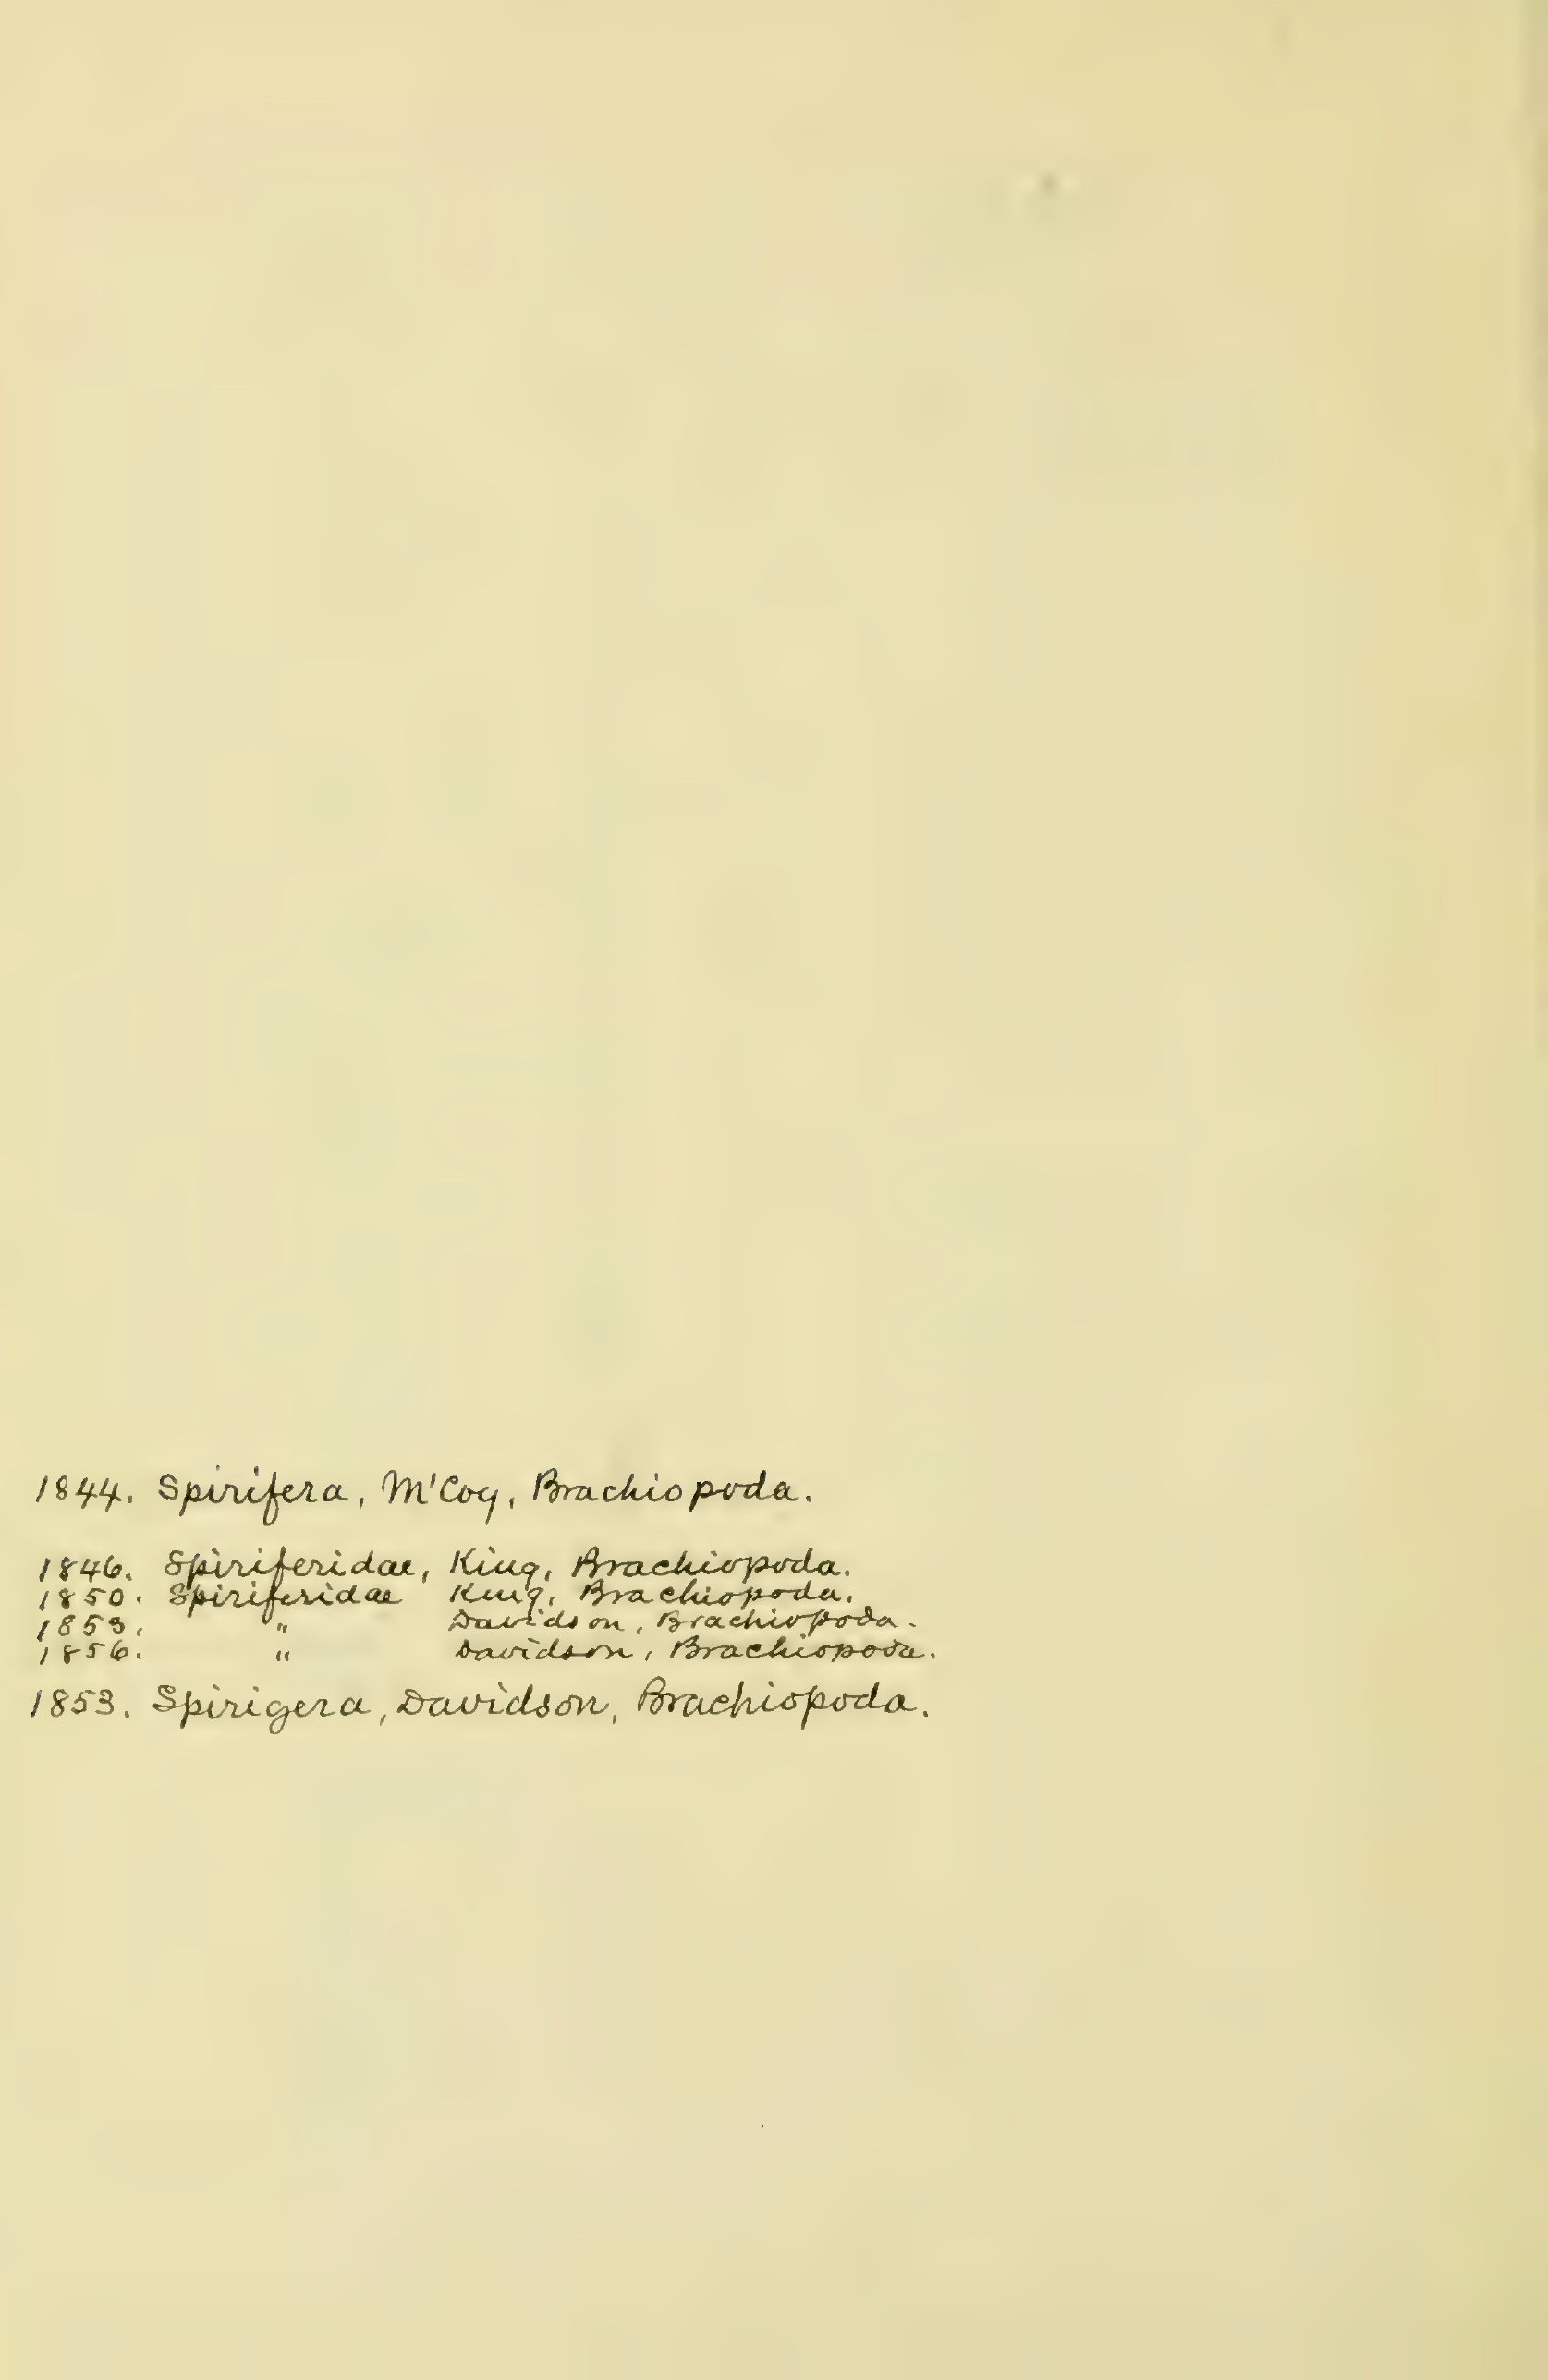 1844. Spirifera, M'Coy, Brachiopoda.
1846. Spiriferidae, King, Brachiopoda.
1850. Spiriferidae King, Brachiopoda.
1853. " Davidson, Brachiopoda.
1856. " Davidson, Brachiopoda.
1853. Spirigera, Davidson, Brachiopoda.